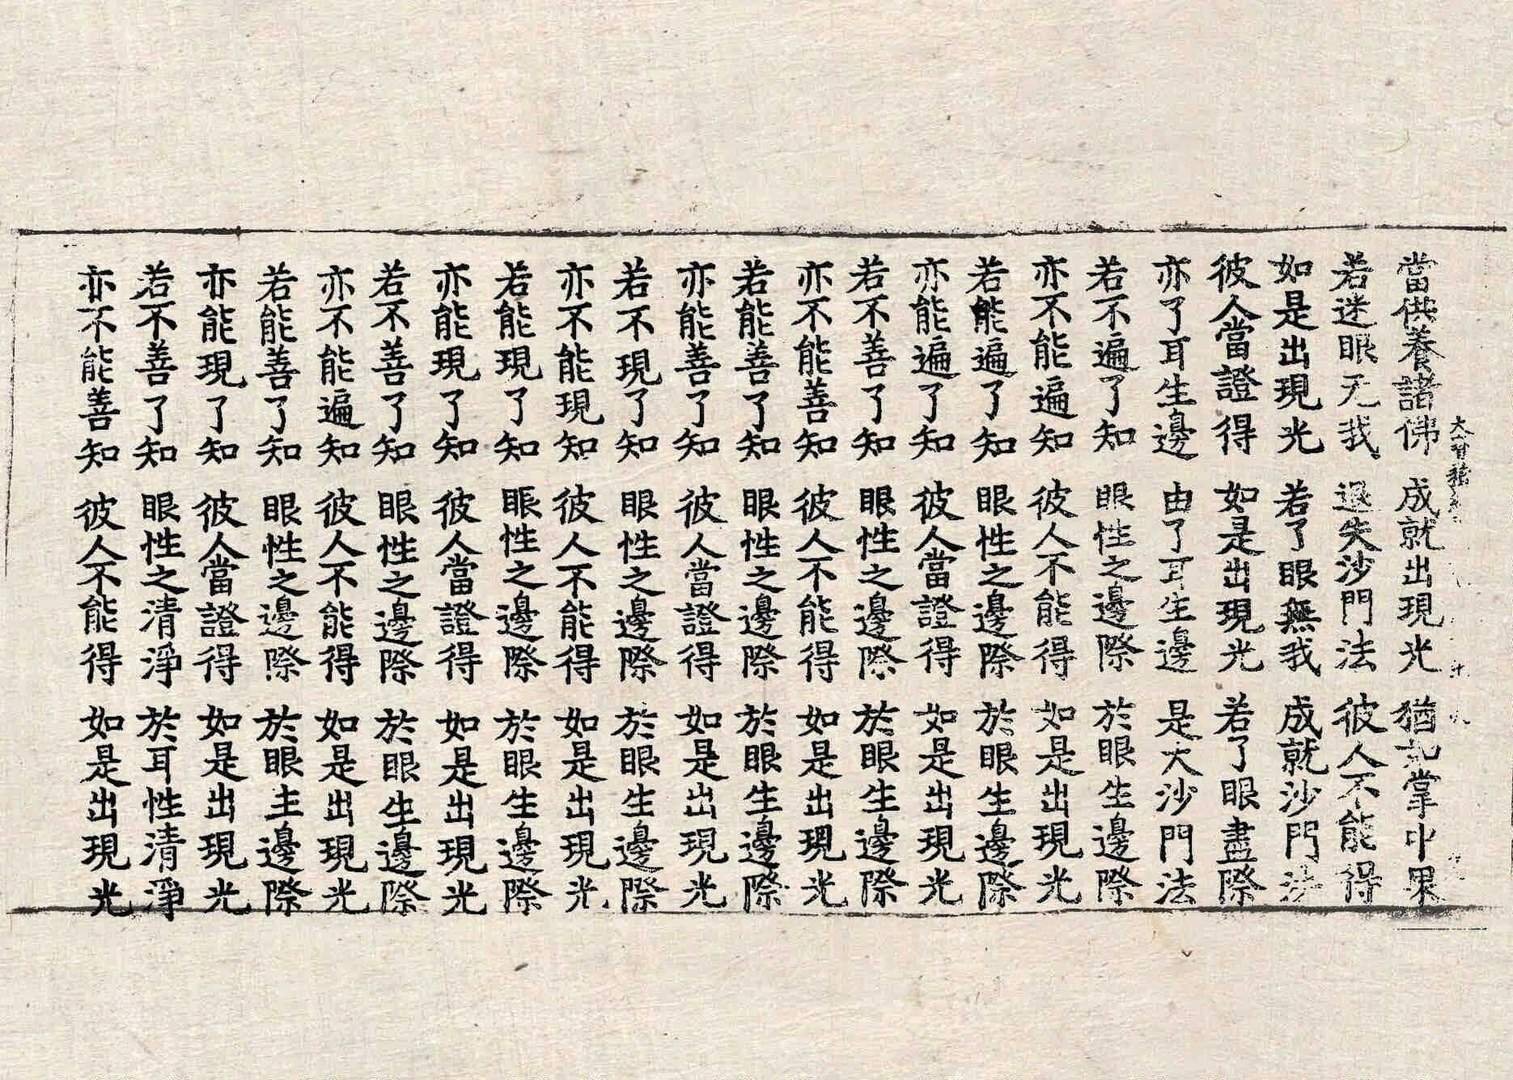 當供養諸佛 成就出現光 猶如掌中果
若迷眼无我 退失沙門法 彼人不能得
如是出現光 若了眼無我 成就沙門法
彼人當證得 如是出現光 若了眼盡際
亦了耳生邊 由了耳生邊 是大沙門法
若不遍了知 眼性之邊際 於眼生邊際
亦不能遍知 彼人不能得 如是出現光
若能遍了知 眼性之邊際 於眼生邊際
亦能遍了知 彼人當證得 如是出現光
若不善了知 眼性之邊際 於眼生邊際
亦不能善知 彼人不能得 如是出現光
若能善了知 眼性之邊際 於眼生邊際
亦能善了知 彼人當證得 如是出現光
若不現了知 眼性之邊際 於眼生邊際
亦不能現知 彼人不能得 如是出現光
若能現了知 眼性之邊際 於眼生邊際
亦能現了知 彼人當證得 如是出現光
若不善了知 眼性之邊際 於眼生邊際
亦不能遍知 彼人不能得 如是出現光
若能善了知 眼性之邊際 於眼生邊際
亦能現了知 彼人當證得 如是出現光
若不善了知 眼性之清淨 於耳性清淨
亦不能善知 彼人不能得 如是出現光